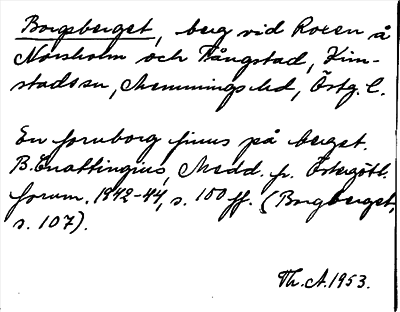 Borgsberget, berg vid Roxen å
Norsholm och Tångstad, Kim-
stads sn, Memmings hd, Östg. l.
En fornborg finns på berget.
B. Cnattingius, Medd. fr. Östergötl.
fornm. 1942-44, s. 100 ff. (Borgberget,
s. 107).
Th. A. 1953.